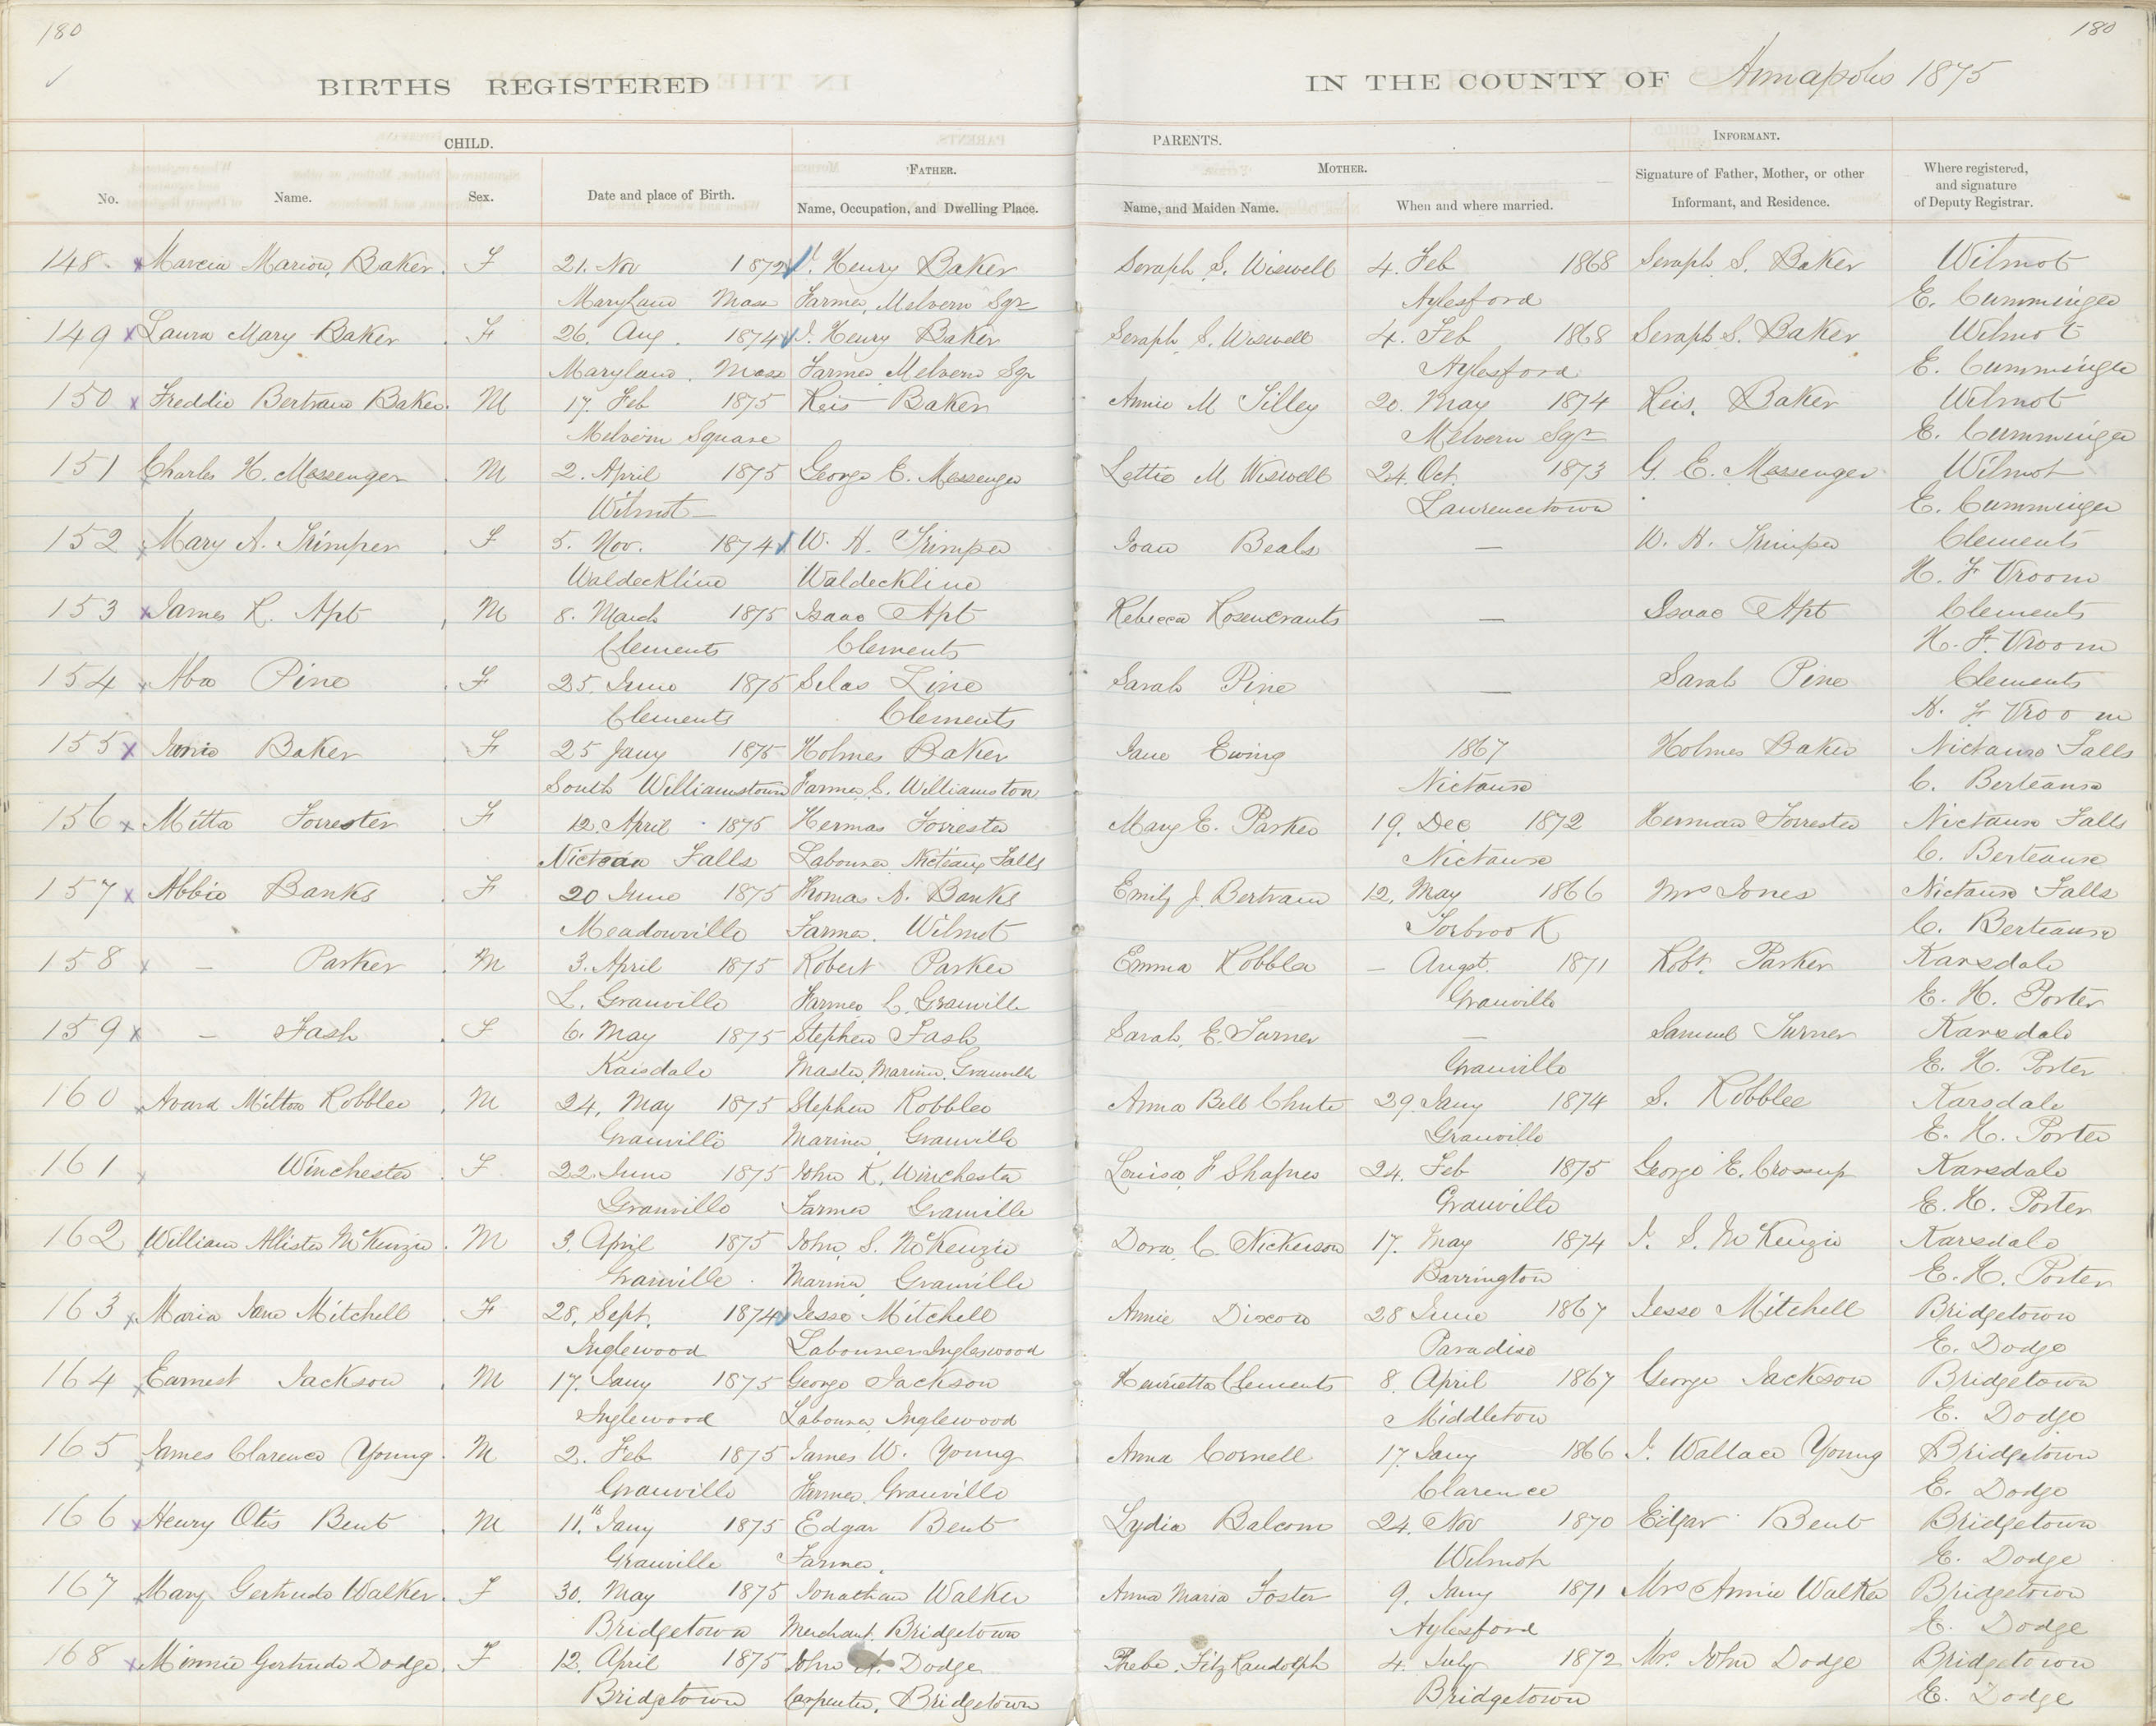 180
180
BIRTHS REGISTERED
IN THE COUNTY OF Annapolis 1875
CHILD.
PARENTS.
INFORMANT.
FATHER.
MOTHER.
No.
Name.
Sex.
Date and place of Birth.
Name, Occupation, and Dwelling Place.
Name, and Maiden Name.
When and where married.
Signature of Father, Mother, or other
Informant, and Residence.
Where registered,
and signature
of Deputy Registrar.
148 x Marcia Marion Baker. F 21. Nov 1872 Henry Baker Seraph S. Wiswell 4. Feb 1868 Seraph S. Baker Wilmot
Maryland Mass Farmer, Melvern Sqr Aylesford E. Cumminger
149 x Laura Mary Baker F 26. Aug. 1874 J. Henry Baker Seraph S. Wiswell 4. Feb 1868 Seraph S. Baker Wilmot
Maryland. Mass Farmer Melvern Sqr Aylesford E. Cumminger
150 x Freddie Bertram Baker. M 17. Feb 1875 Reis Baker Annie M Tilley 20. May 1874 Reis. Baker Wilmot
Melvern Square Melvern Sqr E. Cumminger
151 Charles H. Messenger M 2. April 1875 George E. Messenger Lettie M Wiswell 24. Oct. 1873 G. E. Messenger Wilmot
Wilmot Lawrencetown E. Cumminger
152 x Mary A. Trimper F 5. Nov. 1874 W. H. Trimper Joan Beals — W. H. Trimper Clements
Waldeckline Waldeckline H. F Vroom
153 x James R. Apt M 8. March 1875 Isaac Apt Rebecca Rosencrants — Isaac Apt Clements
Clements Clements H. F. Vroom
154 x Aba Pine F 25. June 1875 Silas Pine Sarah Pine — Sarah Pine Clements
Clements Clements H. F Vroom
155 x Janie Baker F 25 Jany 1875 Holmes Baker Jane Ewing 1867 Holmes Baker Nictaux Falls
South Williamstown Farmer S. Williamston Nictaux C. Berteaux
156 x Mitta Forrester F 12. April 1875 Hermas Forrester Mary E. Parker 19. Dec 1872 Herman Forrester Nictaux Falls
Nictaux Falls Labourer Nictaux Falls Nictaux C. Berteaux
157 x Abbie Banks F 20 June 1875 Thomas A. Banks Emily J. Bertram 12. May 1866 Mrs Jones Nictaux Falls
Meadowville Farmer. Wilmot Torbrook C. Berteaux
158 x – Parker M 3. April 1875 Robert Parker Emma Robblee – Augst. 1871 Robt. Parker Karsdale
L. Granville Farmer L. Granville Granville E. H. Porter
159 x – Fash F 6. May 1875 Stephen Fash Sarah. E. Turner — Samuel Turner Karsdale
Karsdale Master Mariner. Granville Granville E. H. Porter
160 x Avard Milton Robblee M 24. May 1875 Stephen Robblee Anna Bell Chute 29. Jany 1874 S. Robblee Karsdale
Granville Mariner Granville Granville E. H. Porter
161 x Winchester F 22. June 1875 John K. Winchester Louisa F Shafner 24. Feb 1875 George E. Crossup Karsdale
Granville Farmer Granville Granville E. H. Porter
162 William Allister McKenzie. M 3. April 1875 John S. McKenzie Dora C. Nickerson 17. May 1874 J. S. McKenzie Karsdale
Granville. Mariner Granville Barrington E. H. Porter
163 x Maria Jane Mitchell F 28. Sept. 1874 Jesse Mitchell Annie Dixon 28 June 1867 Jesse Mitchell Bridgetown
Inglewood Labourer Ingleswood Paradise E. Dodge
164 x Earnest Jackson M 17. Jany 1875 George Jackson Henrietta Clements 8. April 1867 George Jackson Bridgetown
Inglewood Labourer Inglewood Middleton E. Dodge
165 x James Clarence Young. M 2. Feb 1875 James W. Young Anna Cornell 17. Jany 1866 J. Wallace Young Bridgetown
Granville Farmer Granville Clarence E. Dodge
166 x Henry Otis Bent M 11.th Jany 1875 Edgar Bent Lydia Balcom 24. Nov 1870 Edgar Bent Bridgetown
Granville Farmer. Wilmot E. Dodge
167 x Mary Gertrude Walker. F 30. May 1875 Jonathan Walker Anna Maria Foster 9. Jany 1871 Mrs Annie Walker Bridgetown
Bridgetown Merchant. Bridgetown Aylesford E. Dodge
168 x Minnie Gertrude Dodge. F 12. April 1875 John Dodge Phebe. FitzRandolph 4. July 1872 Mrs. John Dodge Bridgetown
Bridgetown Carpenter. Bridgetown Bridgetown E. Dodge